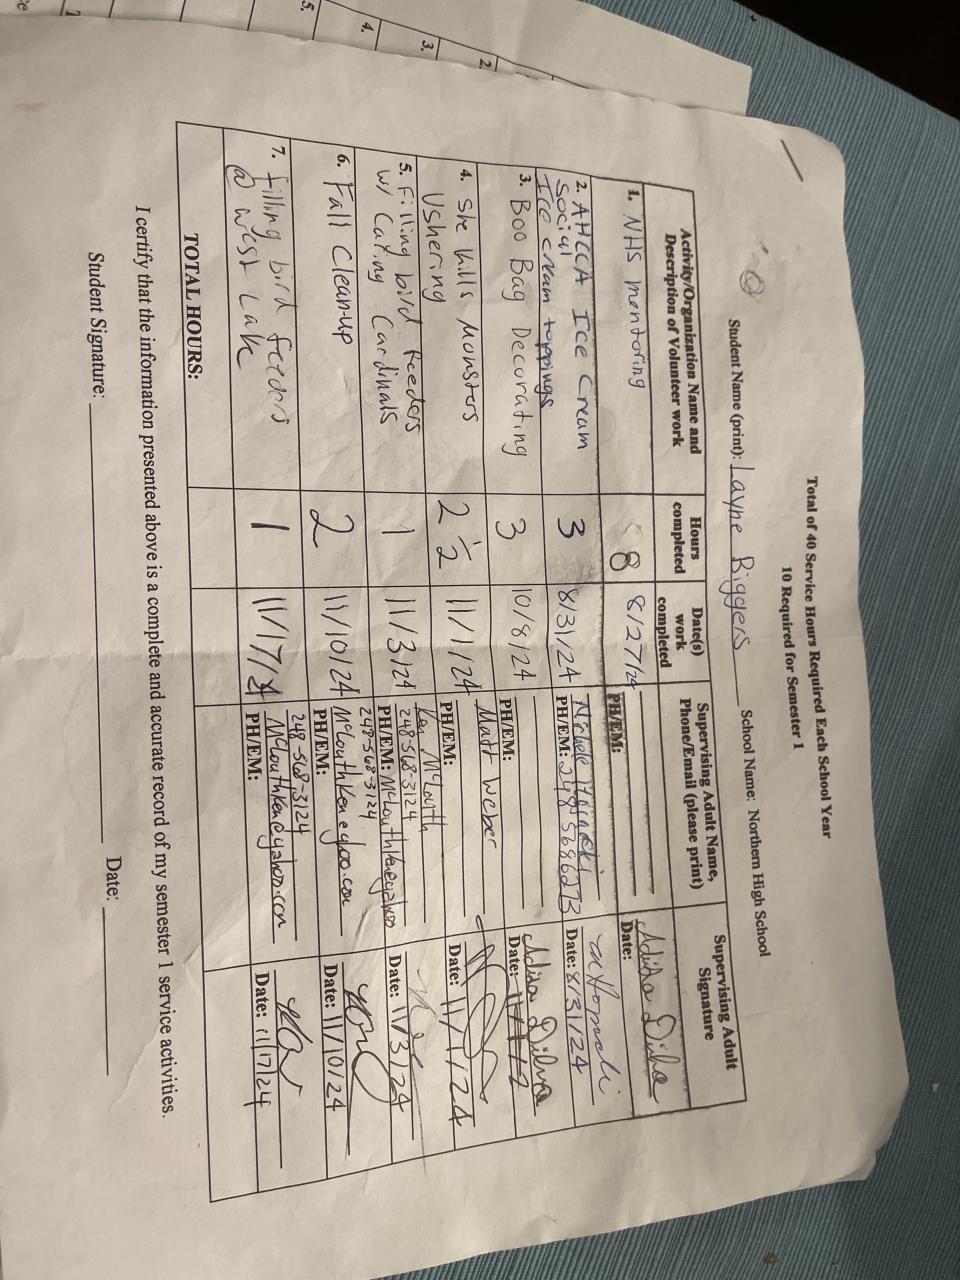 Total of 40 Service Hours Required Each School Year
10 Required for Semester 1
Student Name (print): Layne Biggers School Name: Northern High School
Activity/Organization Name and Description of Volunteer work
Hours completed
Date(s) work completed
Supervising Adult Name, Phone/Email (please print)
Supervising Adult Signature
1. NHS mentoring
8
8/27/24
PH/EM:
Date:
2. AHCCA Ice Cream
Social
Ice cream toppings
3
8/31/24
PH/EM: 248 5686273
Date: 8/31/24
3. Boo Bag Decorating
3
10/8/24
PH/EM:
Date:
4. She kills Monsters
Ushering
2 1/2
11/1/24
Matt Weber
PH/EM:
Date: 11/1/24
5. Filling bird feeders
w/ Caring Cardinals
1
11/3/24
Ken McLouth
248-568-3124
PH/EM: Mclouthken@yahoo
Date: 11/3/24
6. Fall Clean-up
2
11/10/24
248-568-3124
PH/EM:
Date: 11/10/24
7. filling bird feeders
@ West Lake
1
11/17/24
248-568-3124
Mclouthken@yahoo.com
PH/EM:
Date: 11/17/24
TOTAL HOURS:
I certify that the information presented above is a complete and accurate record of my semester 1 service activities.
Student Signature: Date:
2.
3.
4.
5.